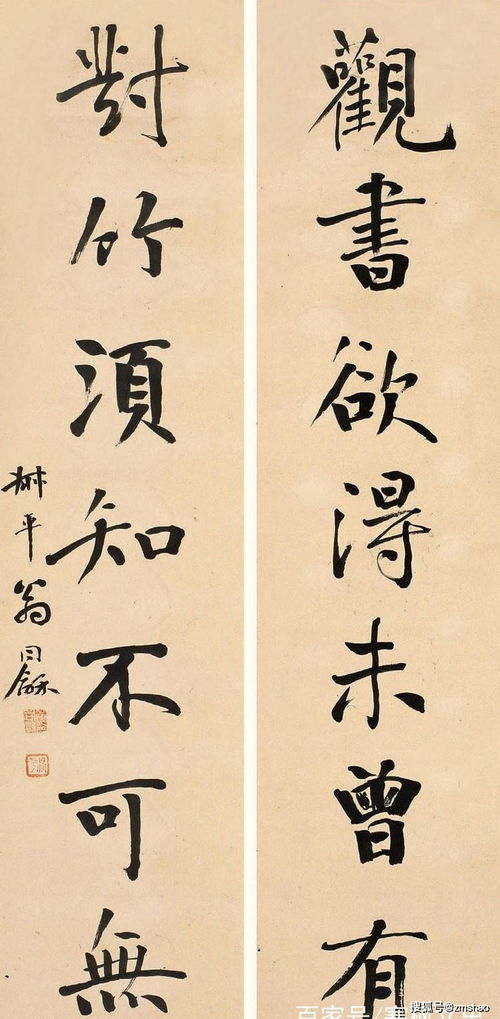 觀書欲得未曾有
對竹須知不可無
叔平翁同龢
搜狐号@zmshao
百家号/